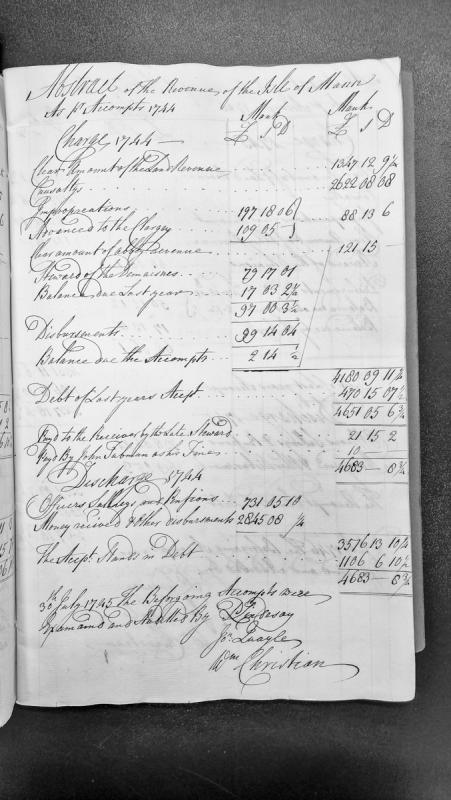 Abstract of the Revenue of the Isle of Mann
As pr Accompts 1744 Mank Mank
£ S D £ S D
Charge 1744 —
Clear Amount of the Land Revenue 1347 12 9½
Casualtys 2622 08 08
Impropreations 197 18 06 } 88 13 6
Advanced to the Clergy 109 05 – }
Clear amount of abbey Revenue 121 15 —
Steward of the Demaisnes 79 17 01
Ballance due Last year 17 03 2½
97 00 3½
Disbursements 99 14 04
Balance due the Accompts 2 14 ½
4180 09 11½
Debt of Last years Accpt 470 15 07½
4651 05 6¾
Payd to the Receiver by the Late Steward 21 15 2
Payd By John Tubman as his Fines 10 —
4683 — 8¾
Discharge 1744
Officers Sallerys and Pensions 731 05 10
Money recieved & other disbursements 2845 08 ¼
3576 13 10¼
The Accpt. Stands in Debt 1106 6 10½
4683 — 8¾
30th July 1745 The Beforgoing Accompts were
Examained and Stabelled By P Lindesay
Jo. Quayle
Wm Christian